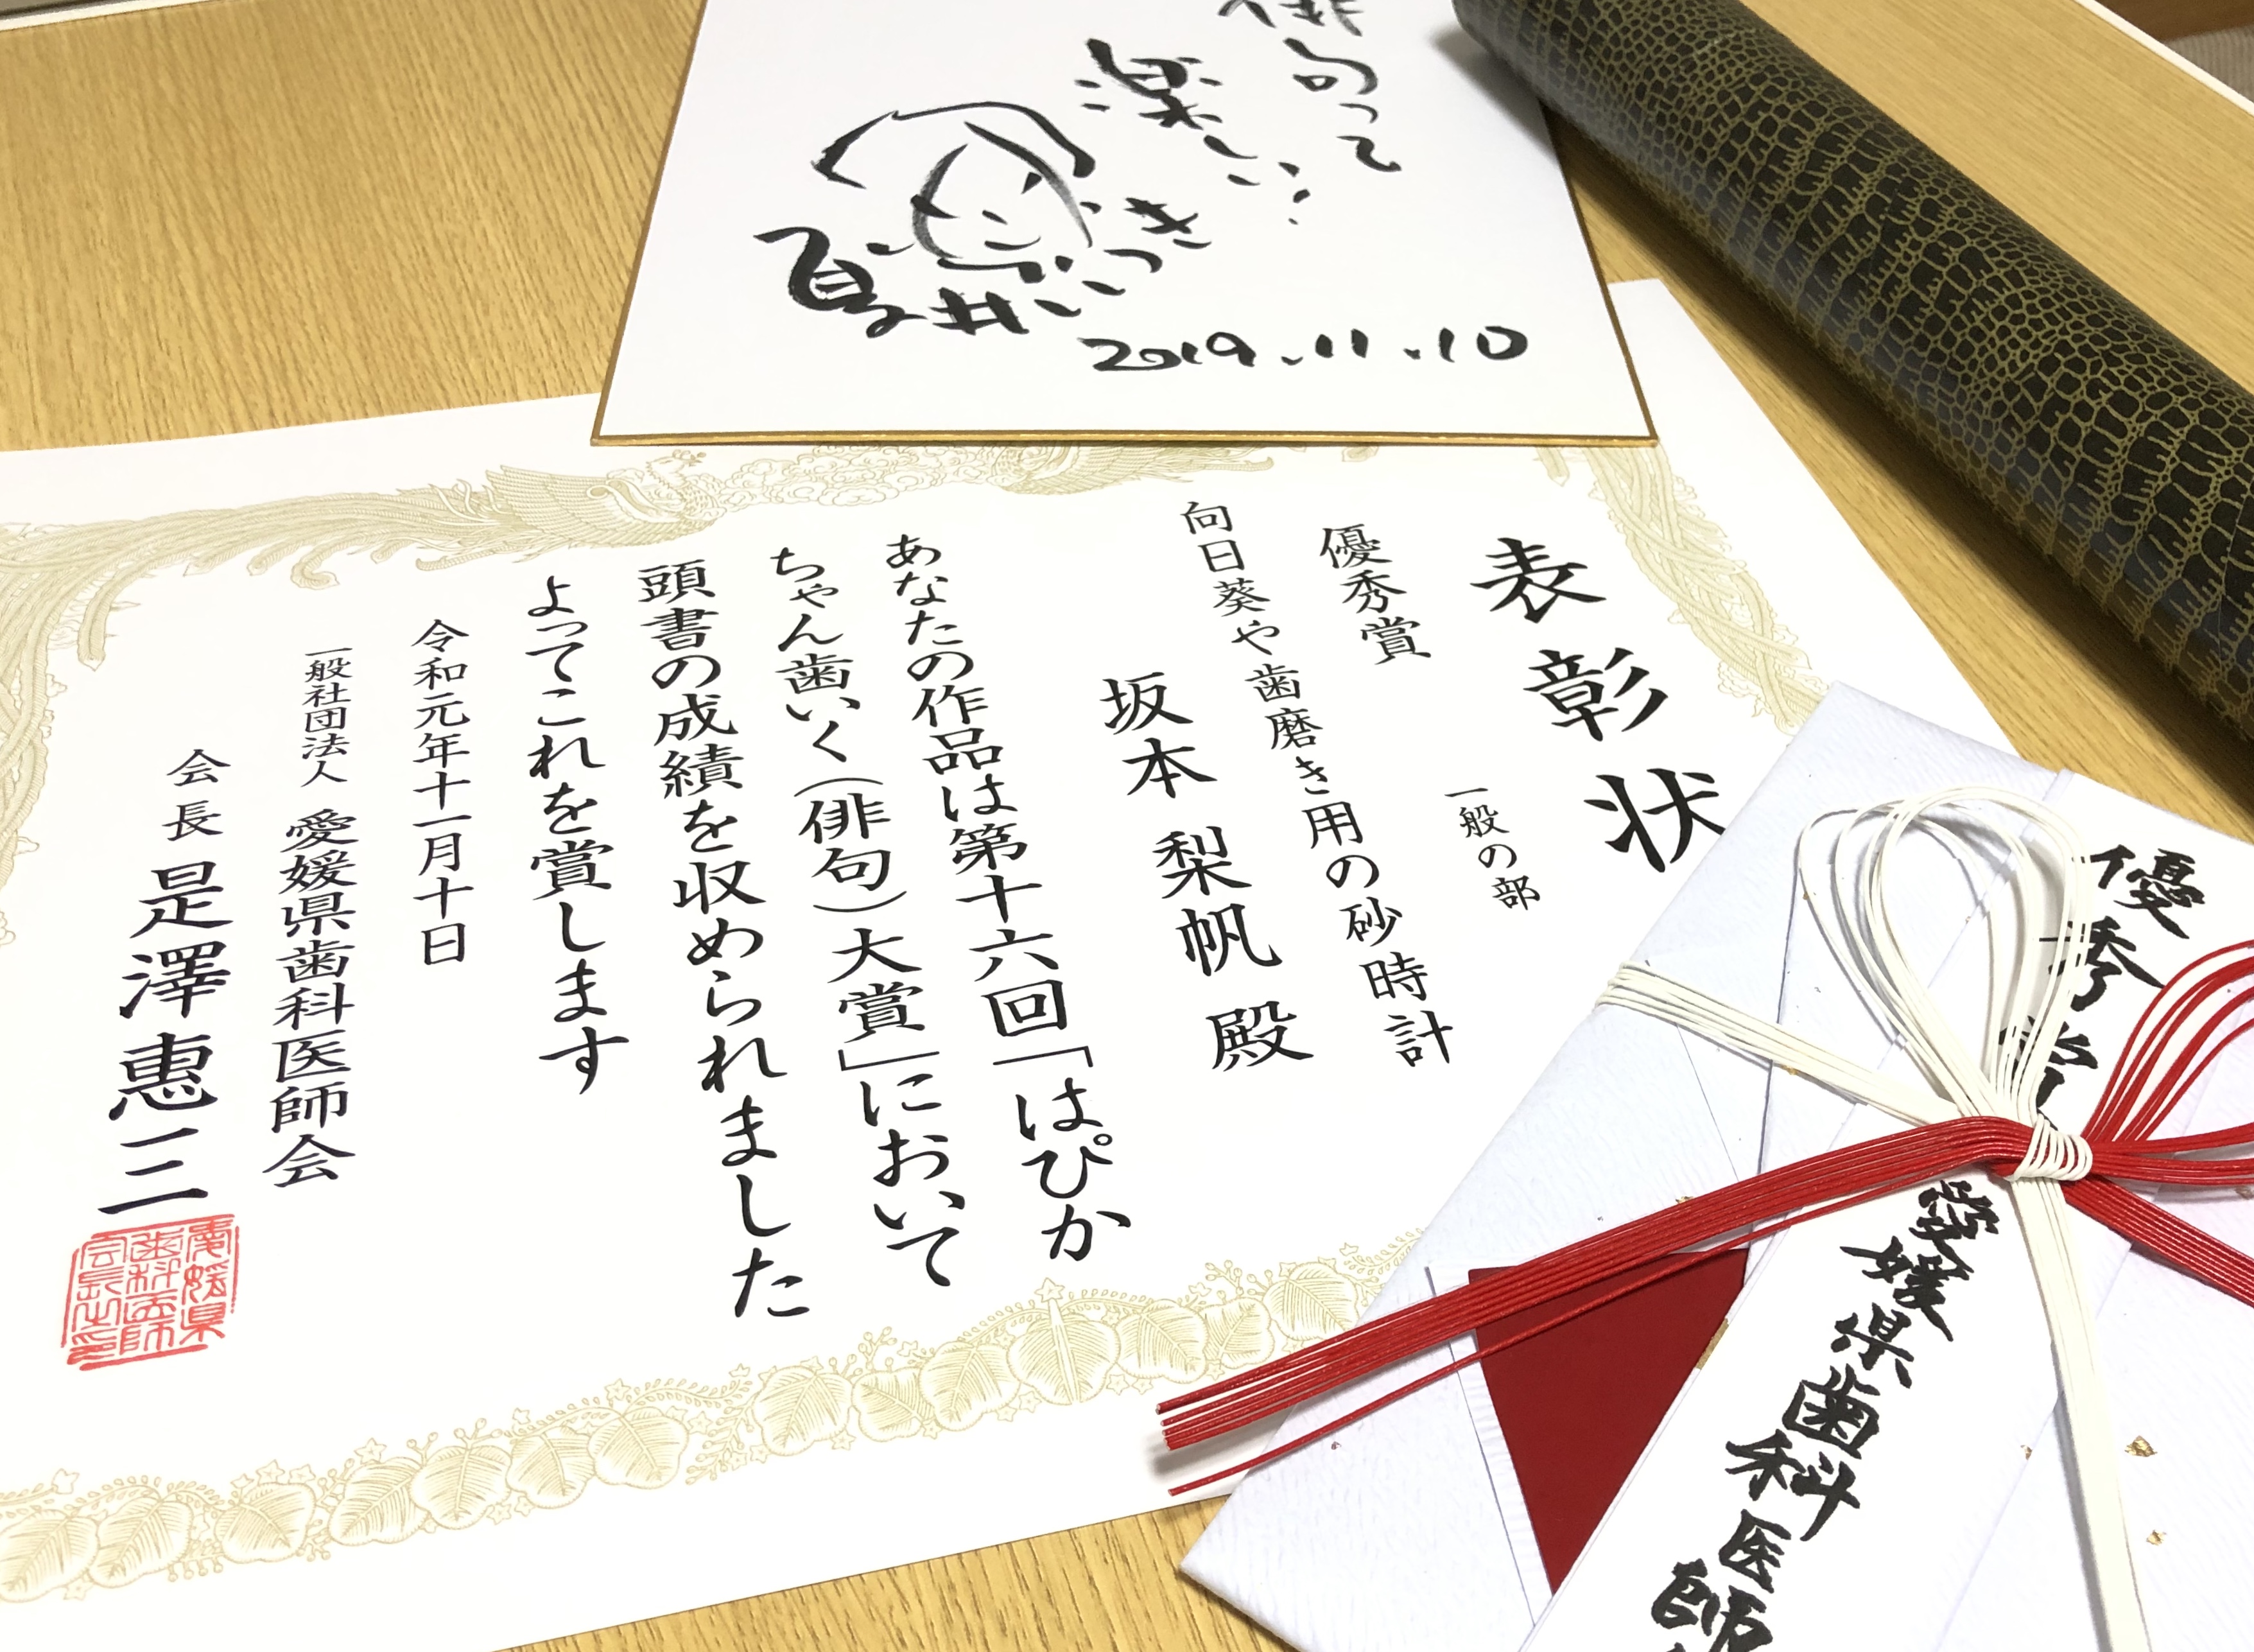 俳句って
楽しい!
夏井いつき
2019.11.10
表彰状
一般の部
優秀賞
向日葵や歯磨き用の砂時計
坂本 梨帆 殿
あなたの作品は第十六回「はぴか
ちゃん歯いく(俳句)大賞」において
頭書の成績を収められました
よってこれを賞します
令和元年十一月十日
一般社団法人 愛媛県歯科医師会
会長 是澤惠三
愛媛県
歯科医師
会長之印
優秀賞
愛媛県歯科医師